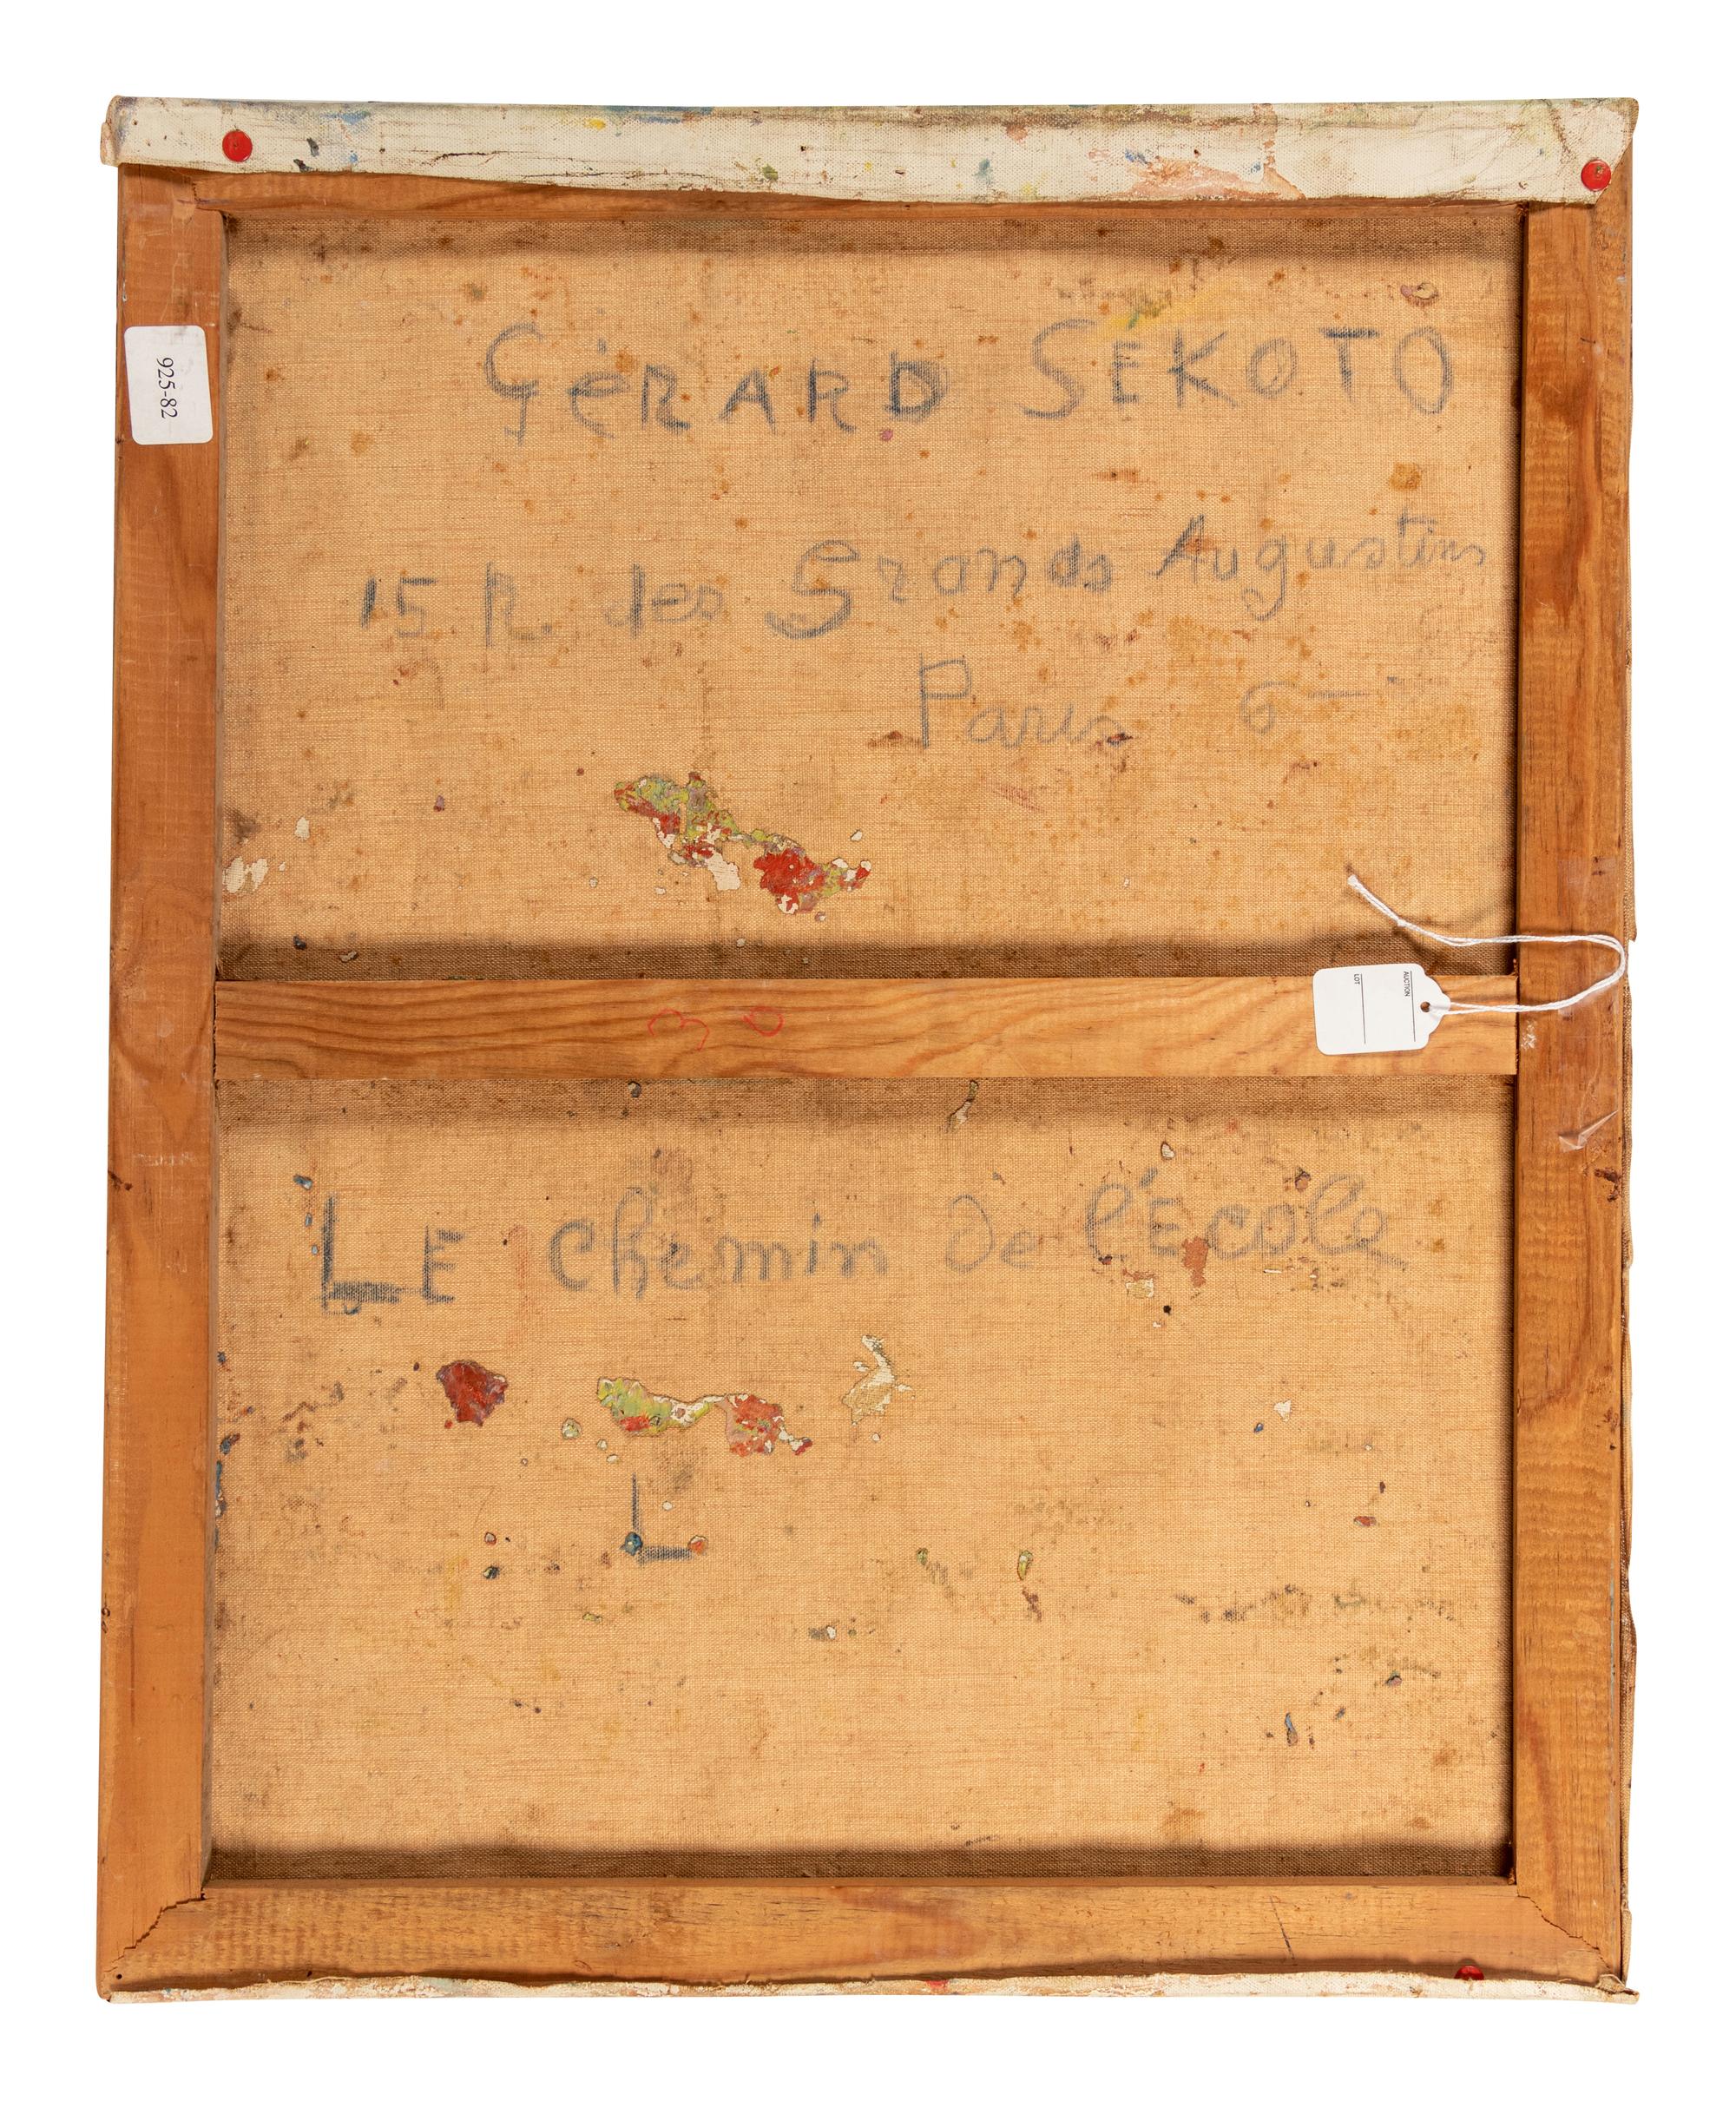 925-82
GéRARD SEKOTO
15 R. des Grands Augustins
Paris 6
AUCTION
LOT
30
LE chemin De l'Ecole
L